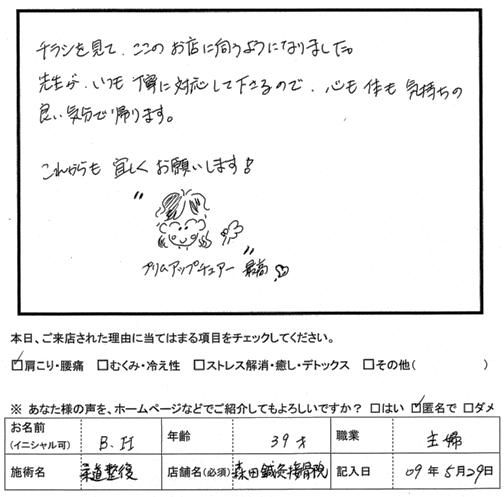 チラシを見て、ここのお店に伺うようになりました。
先生が、いつも丁寧に対応して下さるので、心も体も気持ちの
良い気分で帰ります。
これからも宜しくお願いします!
"プリムアップチュアー 最高"
本日、ご来店された理由に当てはまる項目をチェックしてください。
☑肩こり・腰痛 □むくみ・冷え性 □ストレス解消・癒し・デトックス □その他( )
※ あなた様の声を、ホームページなどでご紹介してもよろしいですか? □はい ☑匿名で □ダメ
お名前(イニシャル可) B.H 年齢 39才 職業 主婦
施術名 柔道整復 店舗名(必須) 森田鍼灸接骨院 記入日 09年5月29日